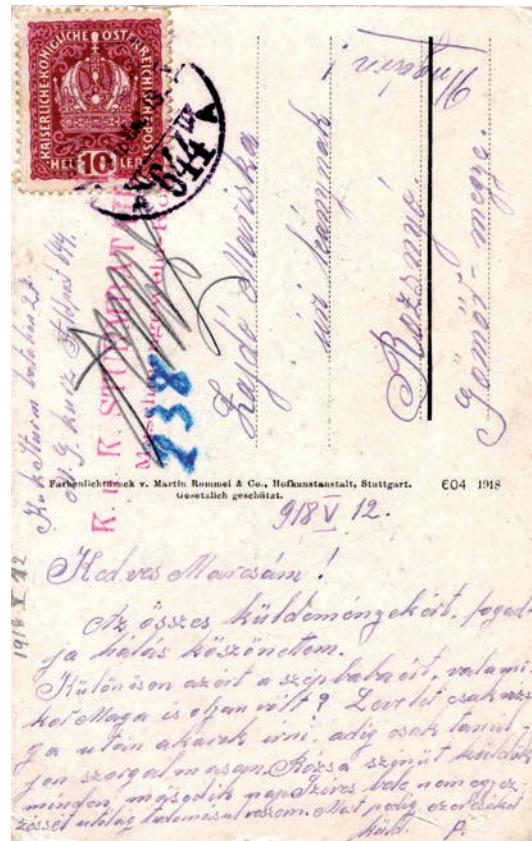 KAISERLICHE KÖNIGLICHE ÖSTERREICHISCHE POST
HELLER
10
644
A
K. u. K. STURMBATA
238
K u K Sturm bataion
M. G. kurz Feldpost 644.
1918 V 12
Zajdó Mariska
úri leánynak
Rozsnyó.
Gömör-megye.
Farbenlichtdruck v. Martin Rommel & Co., Hofkunstanstalt, Stuttgart.
Gesetzlich geschützt.
604 1918
918 V 12.
Kedves Marcsám!
Az összes küldeményekért, fogad-
ja hálás köszönettem.
Különösen azért a szép babáért, valami-
kor Maga is oljan vólt? Levelet csak
ga után akarok irni, adig csak tanul-
jon szorgalmasan. Rózsa szinüt küldök
minden második nap. Szíves
tudomásul veszem. Most pedig ezer csókot
küld. P.